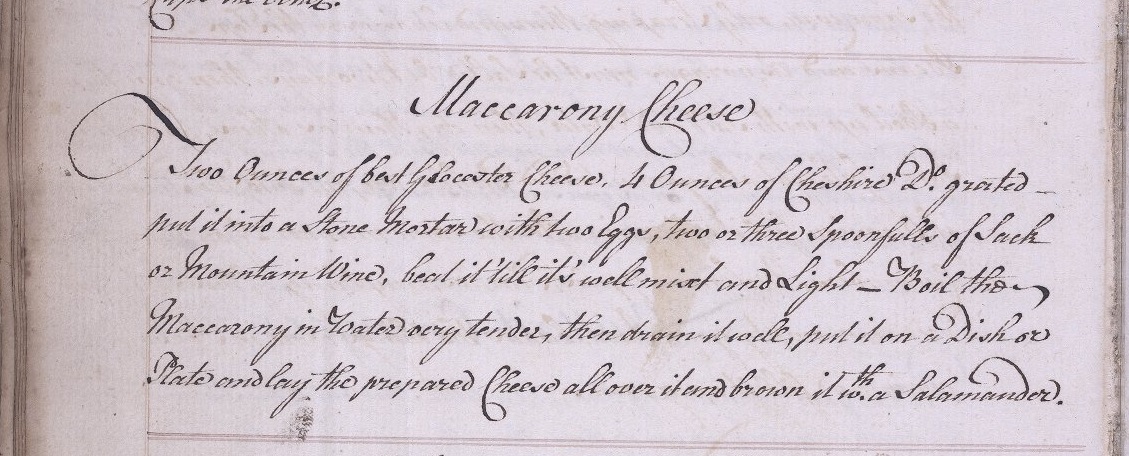 Maccarony Cheese
Two Ounces of best Glocester Cheese, 4 Ounces of Cheshire Do. grated –
put it into a Stone Mortar with two Eggs, two or three Spoonfulls of Sack
or Mountain Wine, beat it 'till it's well mixt and Light – Boil the
Maccarony in Water very tender, then drain it well, put it on a Dish or
Plate and lay the prepared Cheese all over it and brown it wth. a Salamander.